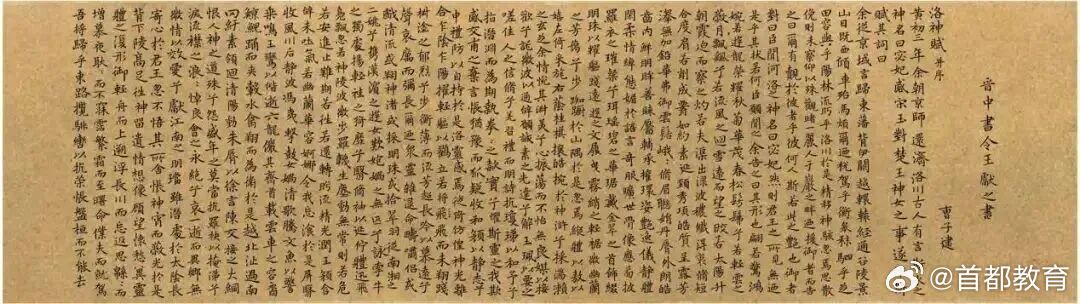 晋中書令王獻之書
曹子建
洛神賦 并序
黄初三年余朝京師還濟洛川古人有言
神名曰宓妃感宋玉對楚王神女之事遂
賦其詞曰
余從京域言歸東藩背伊闕越轘轅經通谷陵景
山日既西傾車殆馬煩爾迺税駕乎蘅皋秣駟乎芝田
容與乎陽林流眄乎洛川於是精移神駭忽焉思散
俯則未察仰以殊觀睹一麗人于巖之畔迺援御者而告
之曰爾有覿於彼者乎彼何人斯若此之艷也御者
對曰臣聞河洛之神名曰宓妃然則君王之所見無迺
是乎其狀若何臣願聞之余告之曰其形也翩若驚鴻
婉若遊龍榮曜秋菊華茂春松髣髴兮若輕雲之
蔽月飄颻兮若流風之迴雪遠而望之皎若太陽升
朝霞迫而察之灼若夫渠出渌波襛纖得衷脩短
合度肩若削成署如約素延頸秀項皓質呈露芳
澤無加鉛華弗御雲髻峩峩脩眉聯娟丹脣外朗皓
齒内鮮明眸善睞靨輔承權瓌姿艷逸儀靜體
閑柔情綽態媚於語言奇服曠世骨像應圖披
羅衣之璀粲兮珥瑶碧之華琚戴金翠之首飾綴
明珠以耀軀踐遠遊之文履曳霧綃之輕裾微幽蘭
之芳藹兮步踟蹰於山隅於是忽焉縱體以遨以
嬉左倚采旄右蔭桂旗攘皓腕於神滸兮采湍瀨
之玄芝余情悦其淑美兮心振蕩而不怡無良媒以接
懽兮託微波以通辭願誠素之先達兮解玉珮以要之
嗟佳人之信脩兮羌習禮而明詩抗瓊珶以和予兮
指潛淵而爲期執拳拳之款實兮懼斯靈之我欺
感交甫之棄言悵猶豫而狐疑收和顔以靜志兮
申禮防以自持於是洛靈感焉徙倚彷徨神光離
合乍陰乍陽擢輕軀以鶴立若將飛而未翔踐
椒塗之郁烈兮步衡薄而流芳超長吟以慕遠兮
聲哀厲而彌長爾迺衆靈雜遝命疇嘯侣或
戲清流或翔神渚或采明珠或拾翠羽從南湘之
二姚兮攜漢濱之遊女歎匏媧之無匹兮詠牽牛
之獨處揚輕袿之猗靡兮翳脩袖以延佇體迅飛
鳧飄忽若神陵波微步羅韈生塵動無常則若危
若安進止難期若往若還轉眄流精光潤玉顔含辭
未吐氣若幽蘭華容婀娜令我忘湌於是屏翳
收風川后靜波馮夷擊鼓女媧清歌騰文魚以警
乘鳴玉鸞以偕逝六龍儼其齊首載雲車之容裔
鯨鯢踊而夾轂水禽翔而爲衛於是越北沚過南
岡紆素領迴清陽動朱脣以徐言陳交接之大綱
恨人神之道殊兮怨盛年之莫當抗羅袂以掩涕兮
淚流襟之浪浪悼良會之永絶兮哀一逝而異鄉無
微情以效愛兮獻江南之明璫雖潛處於太陰長
寄心於君王忽不悟其所舍悵神宵而蔽光於是背
下陵高足往神留遺情想像顧望懷愁冀靈
體之復形御輕舟而上泝浮長川而忘返思緜緜而
增慕夜耿耿而不寐霑繁霜而至曙命僕夫而就駕
吾將歸乎東路攬騑轡以抗策悵盤桓而不能去
@首都教育